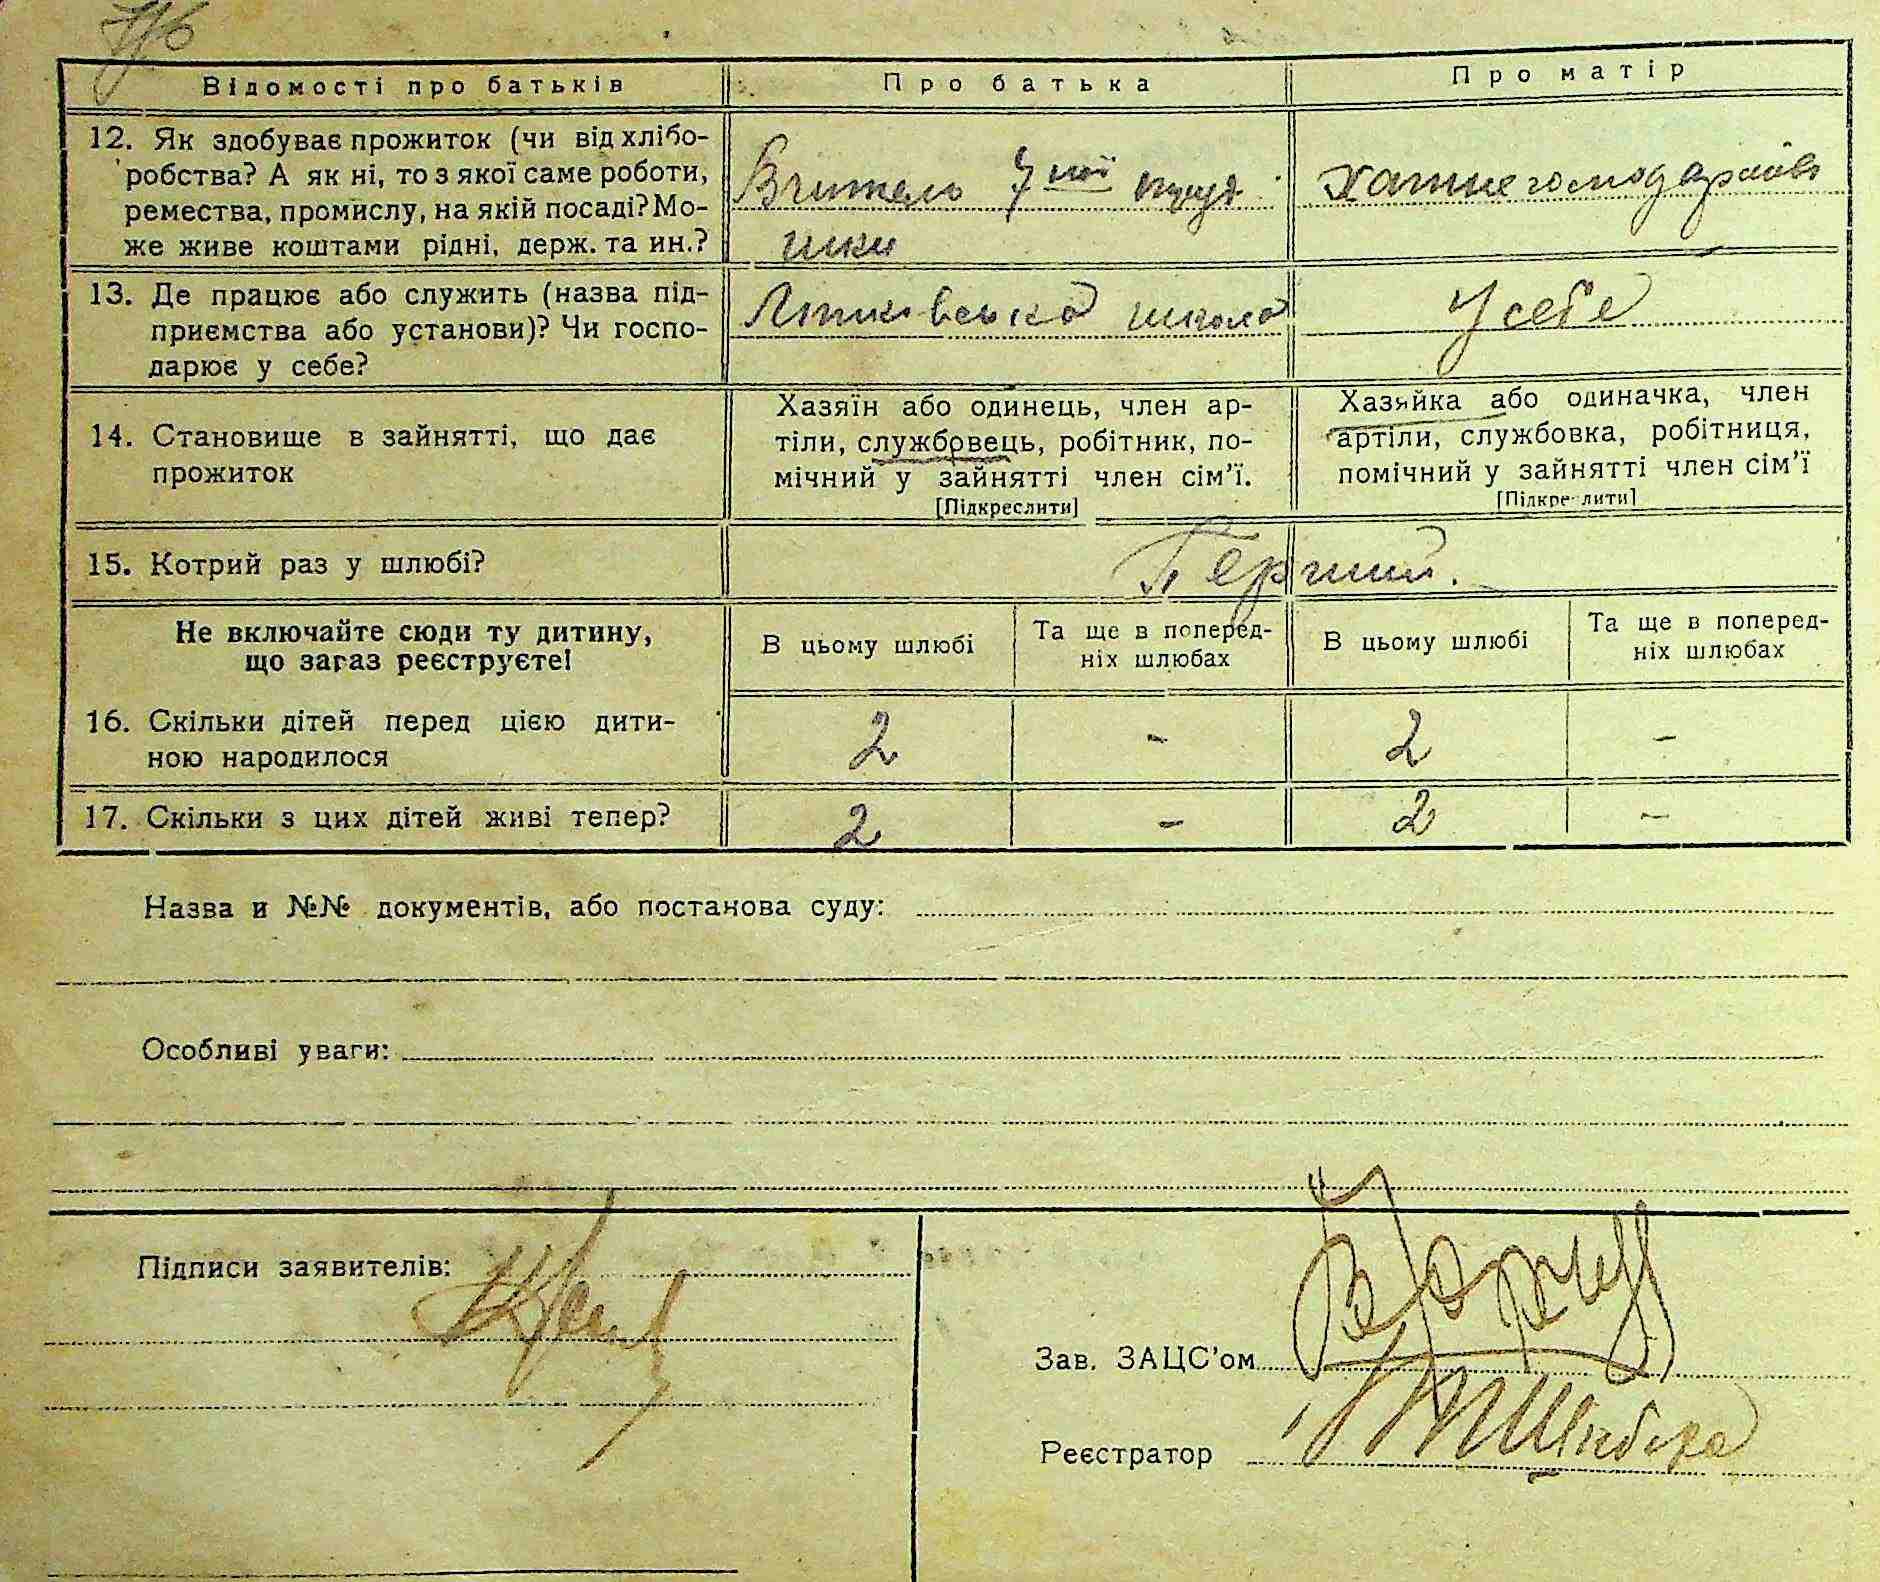 Відомості про батьків
Про батька
Про матір
12. Як здобуває прожиток (чи від хлібо-
робства? А як ні, то з якої саме роботи,
ремества, промислу, на якій посаді? Мо-
же живе коштами рідні, держ. та ин.?
Вчитель 7 ної труд
шки
Хатнє господарство
13. Де працює або служить (назва під-
приємства або установи)? Чи госпо-
дарює у себе?
школа
У себе
14. Становище в зайнятті, що дає
прожиток
Хазяїн або одинець, член ар-
тіли, службовець, робітник, по-
мічний у зайнятті член сім'ї.
[Підкреслити]
Хазяйка або одиначка, член
артіли, службовка, робітниця,
помічний у зайнятті член сім'ї
[Підкреслити]
15. Котрий раз у шлюбі?
Перший.
Не включайте сюди ту дитину,
що зараз реєструєте!
В цьому шлюбі
Та ще в поперед-
ніх шлюбах
В цьому шлюбі
Та ще в поперед-
ніх шлюбах
16. Скільки дітей перед цією дити-
ною народилося
2 - 2 -
17. Скільки з цих дітей живі тепер?
2 - 2 -
Назва и №№ документів, або постанова суду:
Особливі уваги:
Підписи заявителів:
Зав. ЗАЦС'ом
Реєстратор